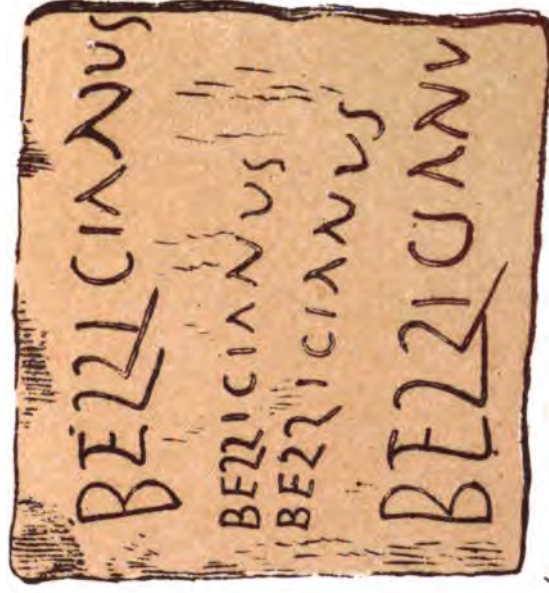 BELLICIANUS
BELLICIANUS
BELLICIANUS
BELLICIANU